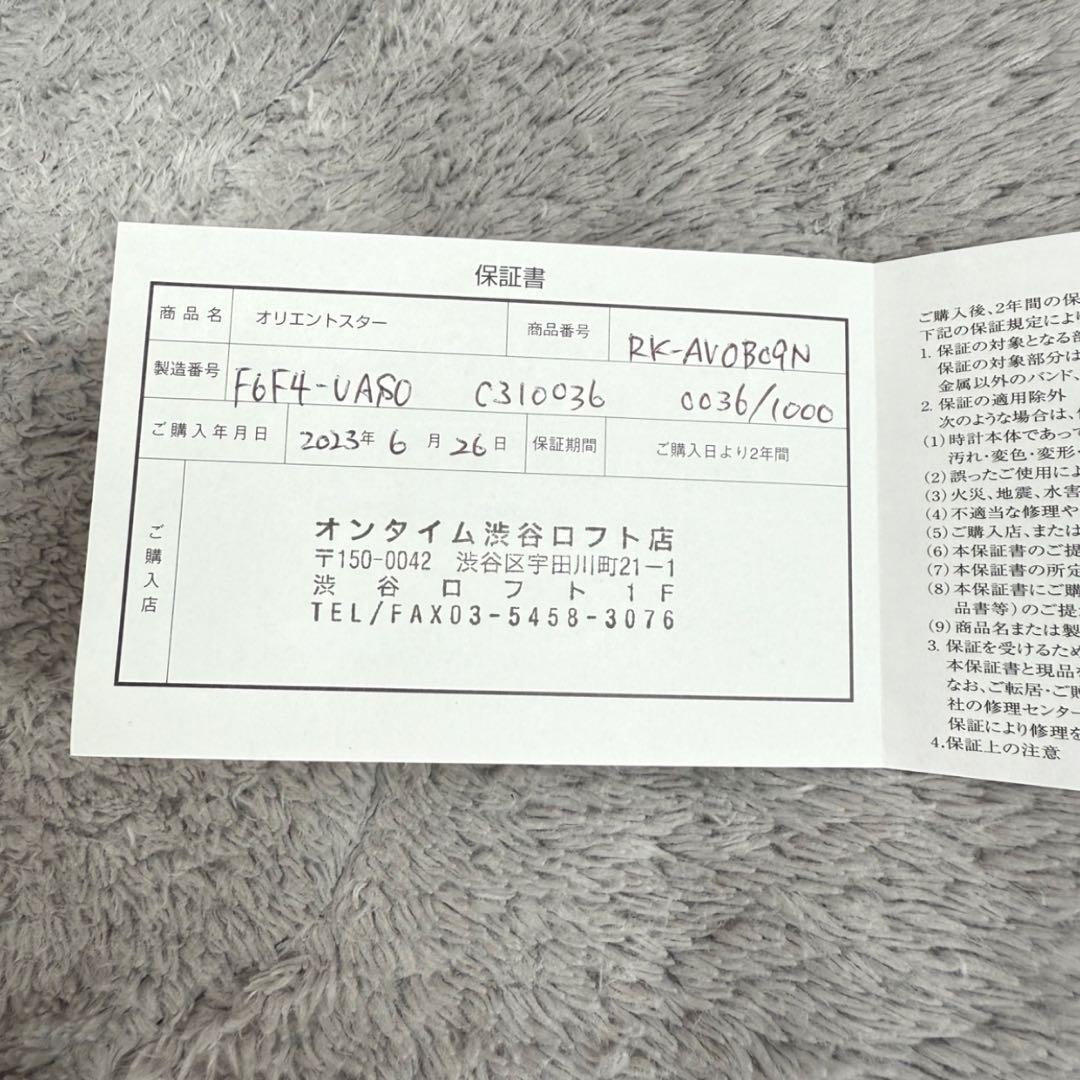 保証書
商品名 オリエントスター 商品番号 RK-AV0B09N
製造番号 F6F4-UAS0 C310036 0036/1000
ご購入年月日 2023年 6月 26日 保証期間 ご購入日より2年間
ご購入店
オンタイム渋谷ロフト店
〒150-0042 渋谷区宇田川町21-1
渋谷ロフト1F
TEL/FAX03-5458-3076
ご購入後、2年間の保
下記の保証規定により
1. 保証の対象となる部
保証の対象部分は
金属以外のバンド、
2. 保証の適用除外
次のような場合は、
(1)時計本体であって
汚れ・変色・変形・
(2)誤ったご使用によ
(3)火災、地震、水害
(4)不適当な修理や
(5)ご購入店、または
(6)本保証書のご提
(7)本保証書の所定
(8)本保証書にご購
品書等)のご提
(9)商品名または製
3. 保証を受けるため
本保証書と現品を
なお、ご転居・ご贈
社の修理センター
保証により修理を
4.保証上の注意